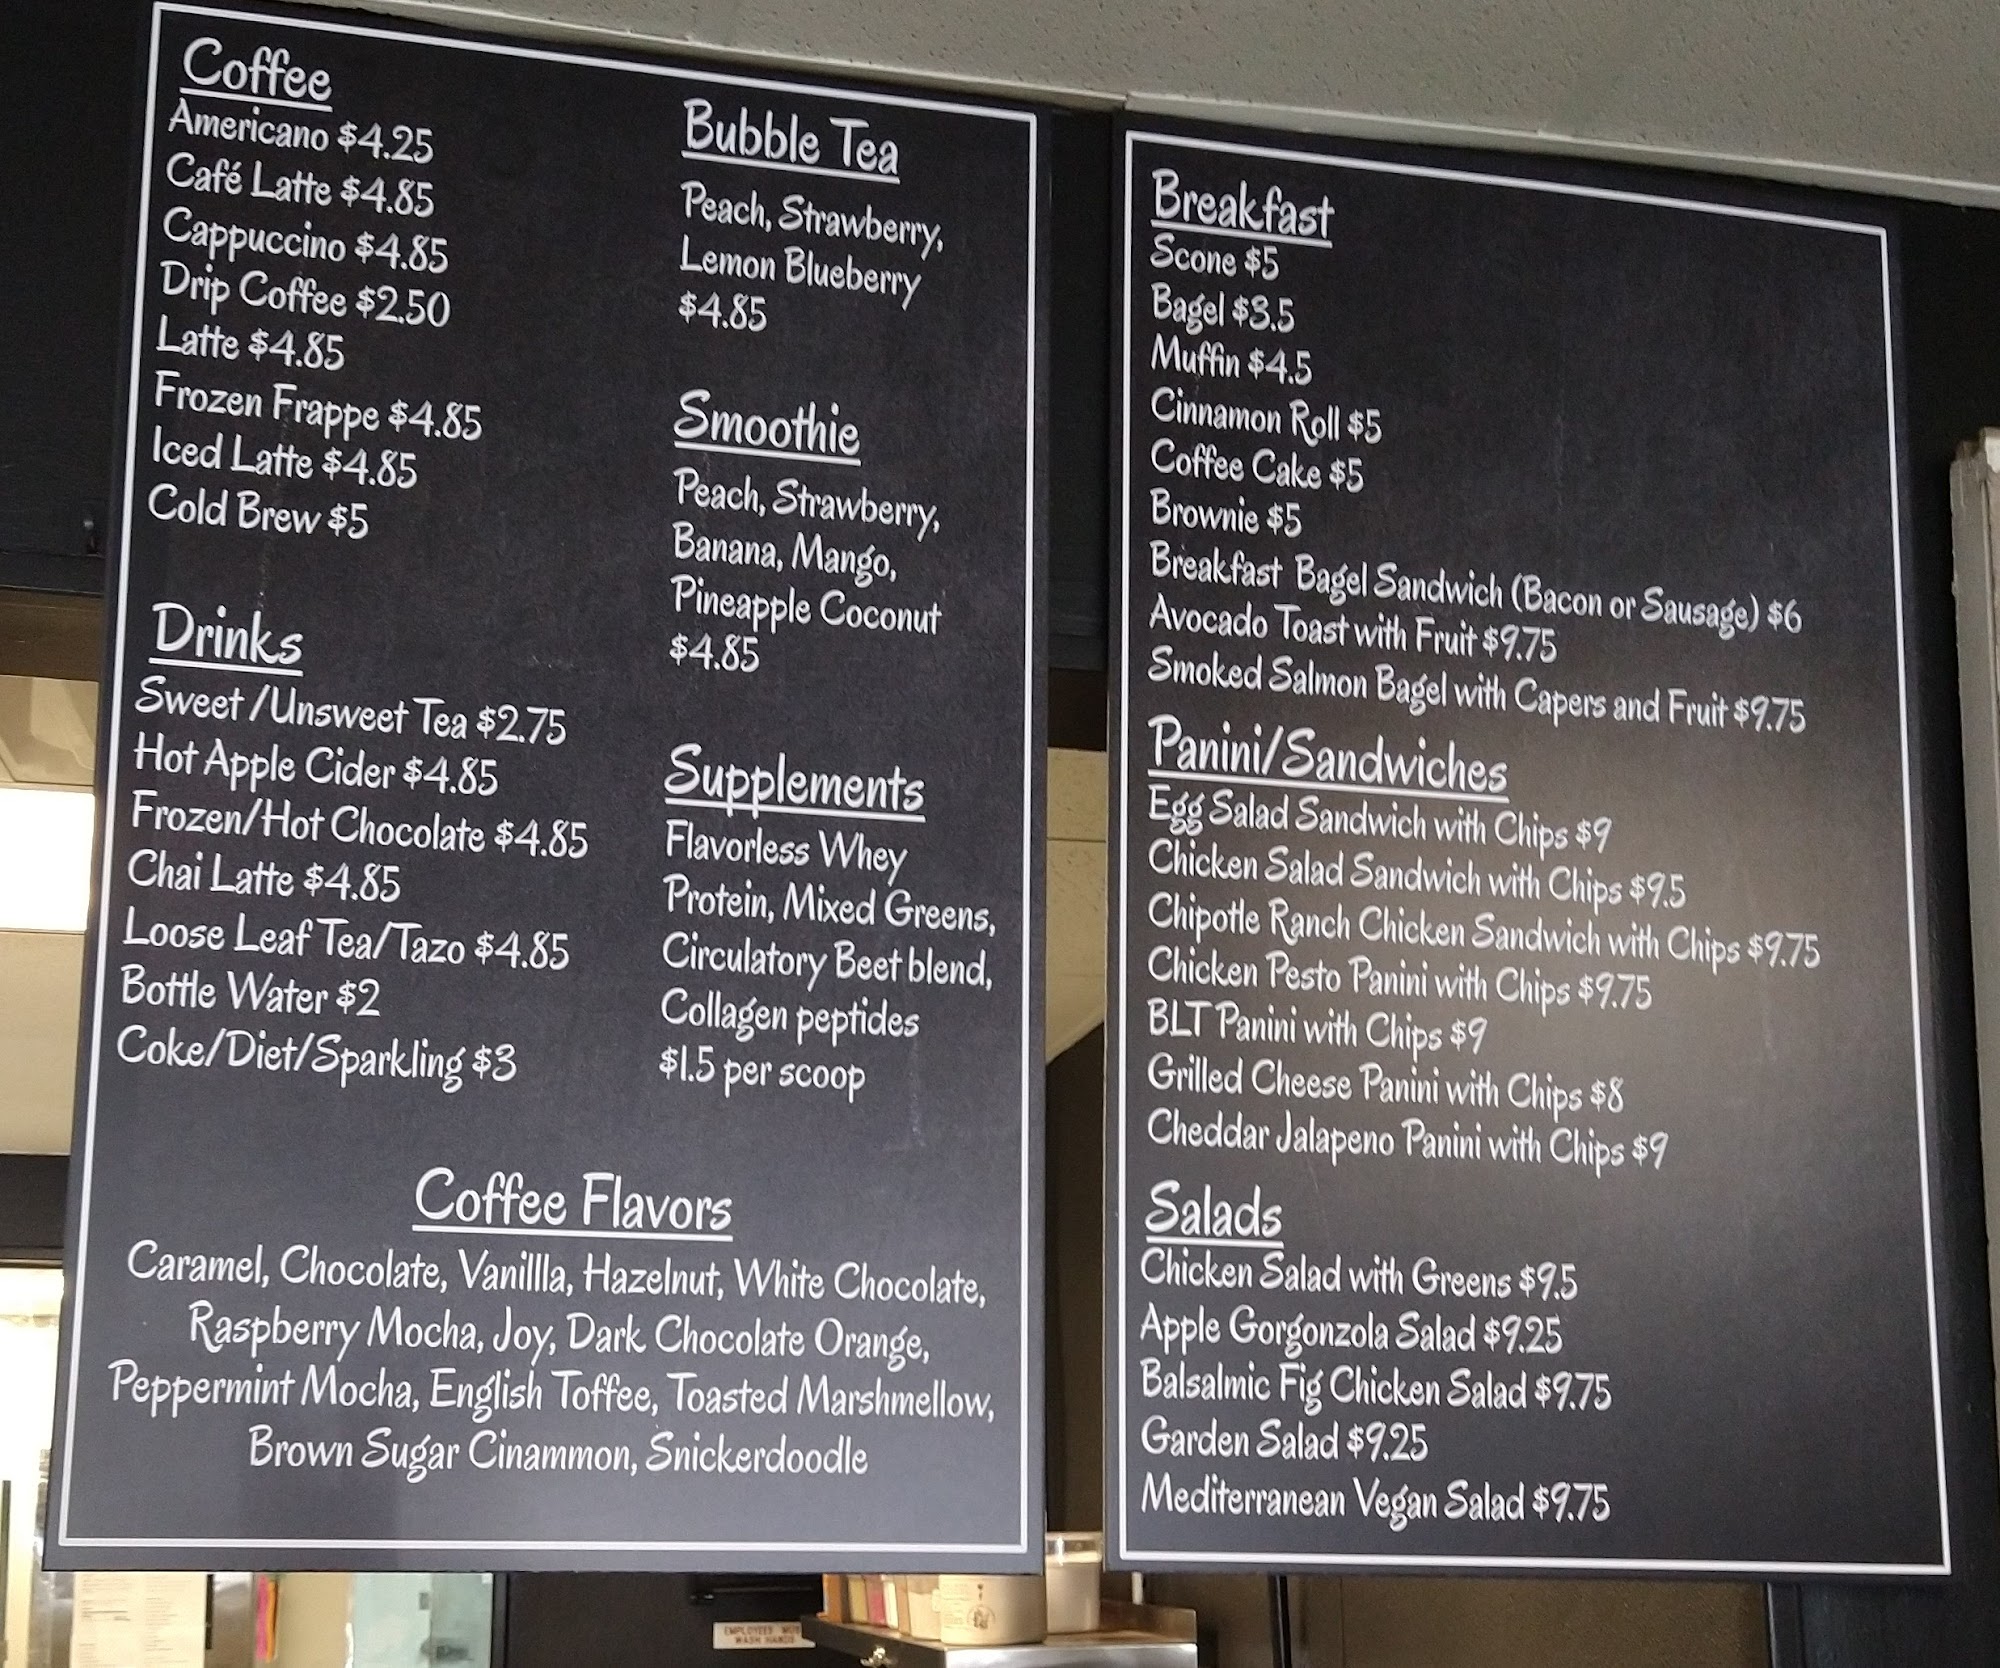 Coffee
Americano $4.25
Café Latte $4.85
Cappuccino $4.85
Drip Coffee $2.50
Latte $4.85
Frozen Frappe $4.85
Iced Latte $4.85
Cold Brew $5
Drinks
Sweet/Unsweet Tea $2.75
Hot Apple Cider $4.85
Frozen/Hot Chocolate $4.85
Chai Latte $4.85
Loose Leaf Tea/Tazo $4.85
Bottle Water $2
Coke/Diet/Sparkling $3
Bubble Tea
Peach, Strawberry,
Lemon Blueberry
$4.85
Smoothie
Peach, Strawberry,
Banana, Mango,
Pineapple Coconut
$4.85
Supplements
Flavorless Whey
Protein, Mixed Greens,
Circulatory Beet blend,
Collagen peptides
$1.5 per scoop
Coffee Flavors
Caramel, Chocolate, Vanillla, Hazelnut, White Chocolate,
Raspberry Mocha, Joy, Dark Chocolate Orange,
Peppermint Mocha, English Toffee, Toasted Marshmellow,
Brown Sugar Cinammon, Snickerdoodle
Breakfast
Scone $5
Bagel $3.5
Muffin $4.5
Cinnamon Roll $5
Coffee Cake $5
Brownie $5
Breakfast Bagel Sandwich (Bacon or Sausage) $6
Avocado Toast with Fruit $9.75
Smoked Salmon Bagel with Capers and Fruit $9.75
Panini/Sandwiches
Egg Salad Sandwich with Chips $9
Chicken Salad Sandwich with Chips $9.5
Chipotle Ranch Chicken Sandwich with Chips $9.75
Chicken Pesto Panini with Chips $9.75
BLT Panini with Chips $9
Grilled Cheese Panini with Chips $8
Cheddar Jalapeno Panini with Chips $9
Salads
Chicken Salad with Greens $9.5
Apple Gorgonzola Salad $9.25
Balsalmic Fig Chicken Salad $9.75
Garden Salad $9.25
Mediterranean Vegan Salad $9.75
EMPLOYEES MUS
WASH HANDS